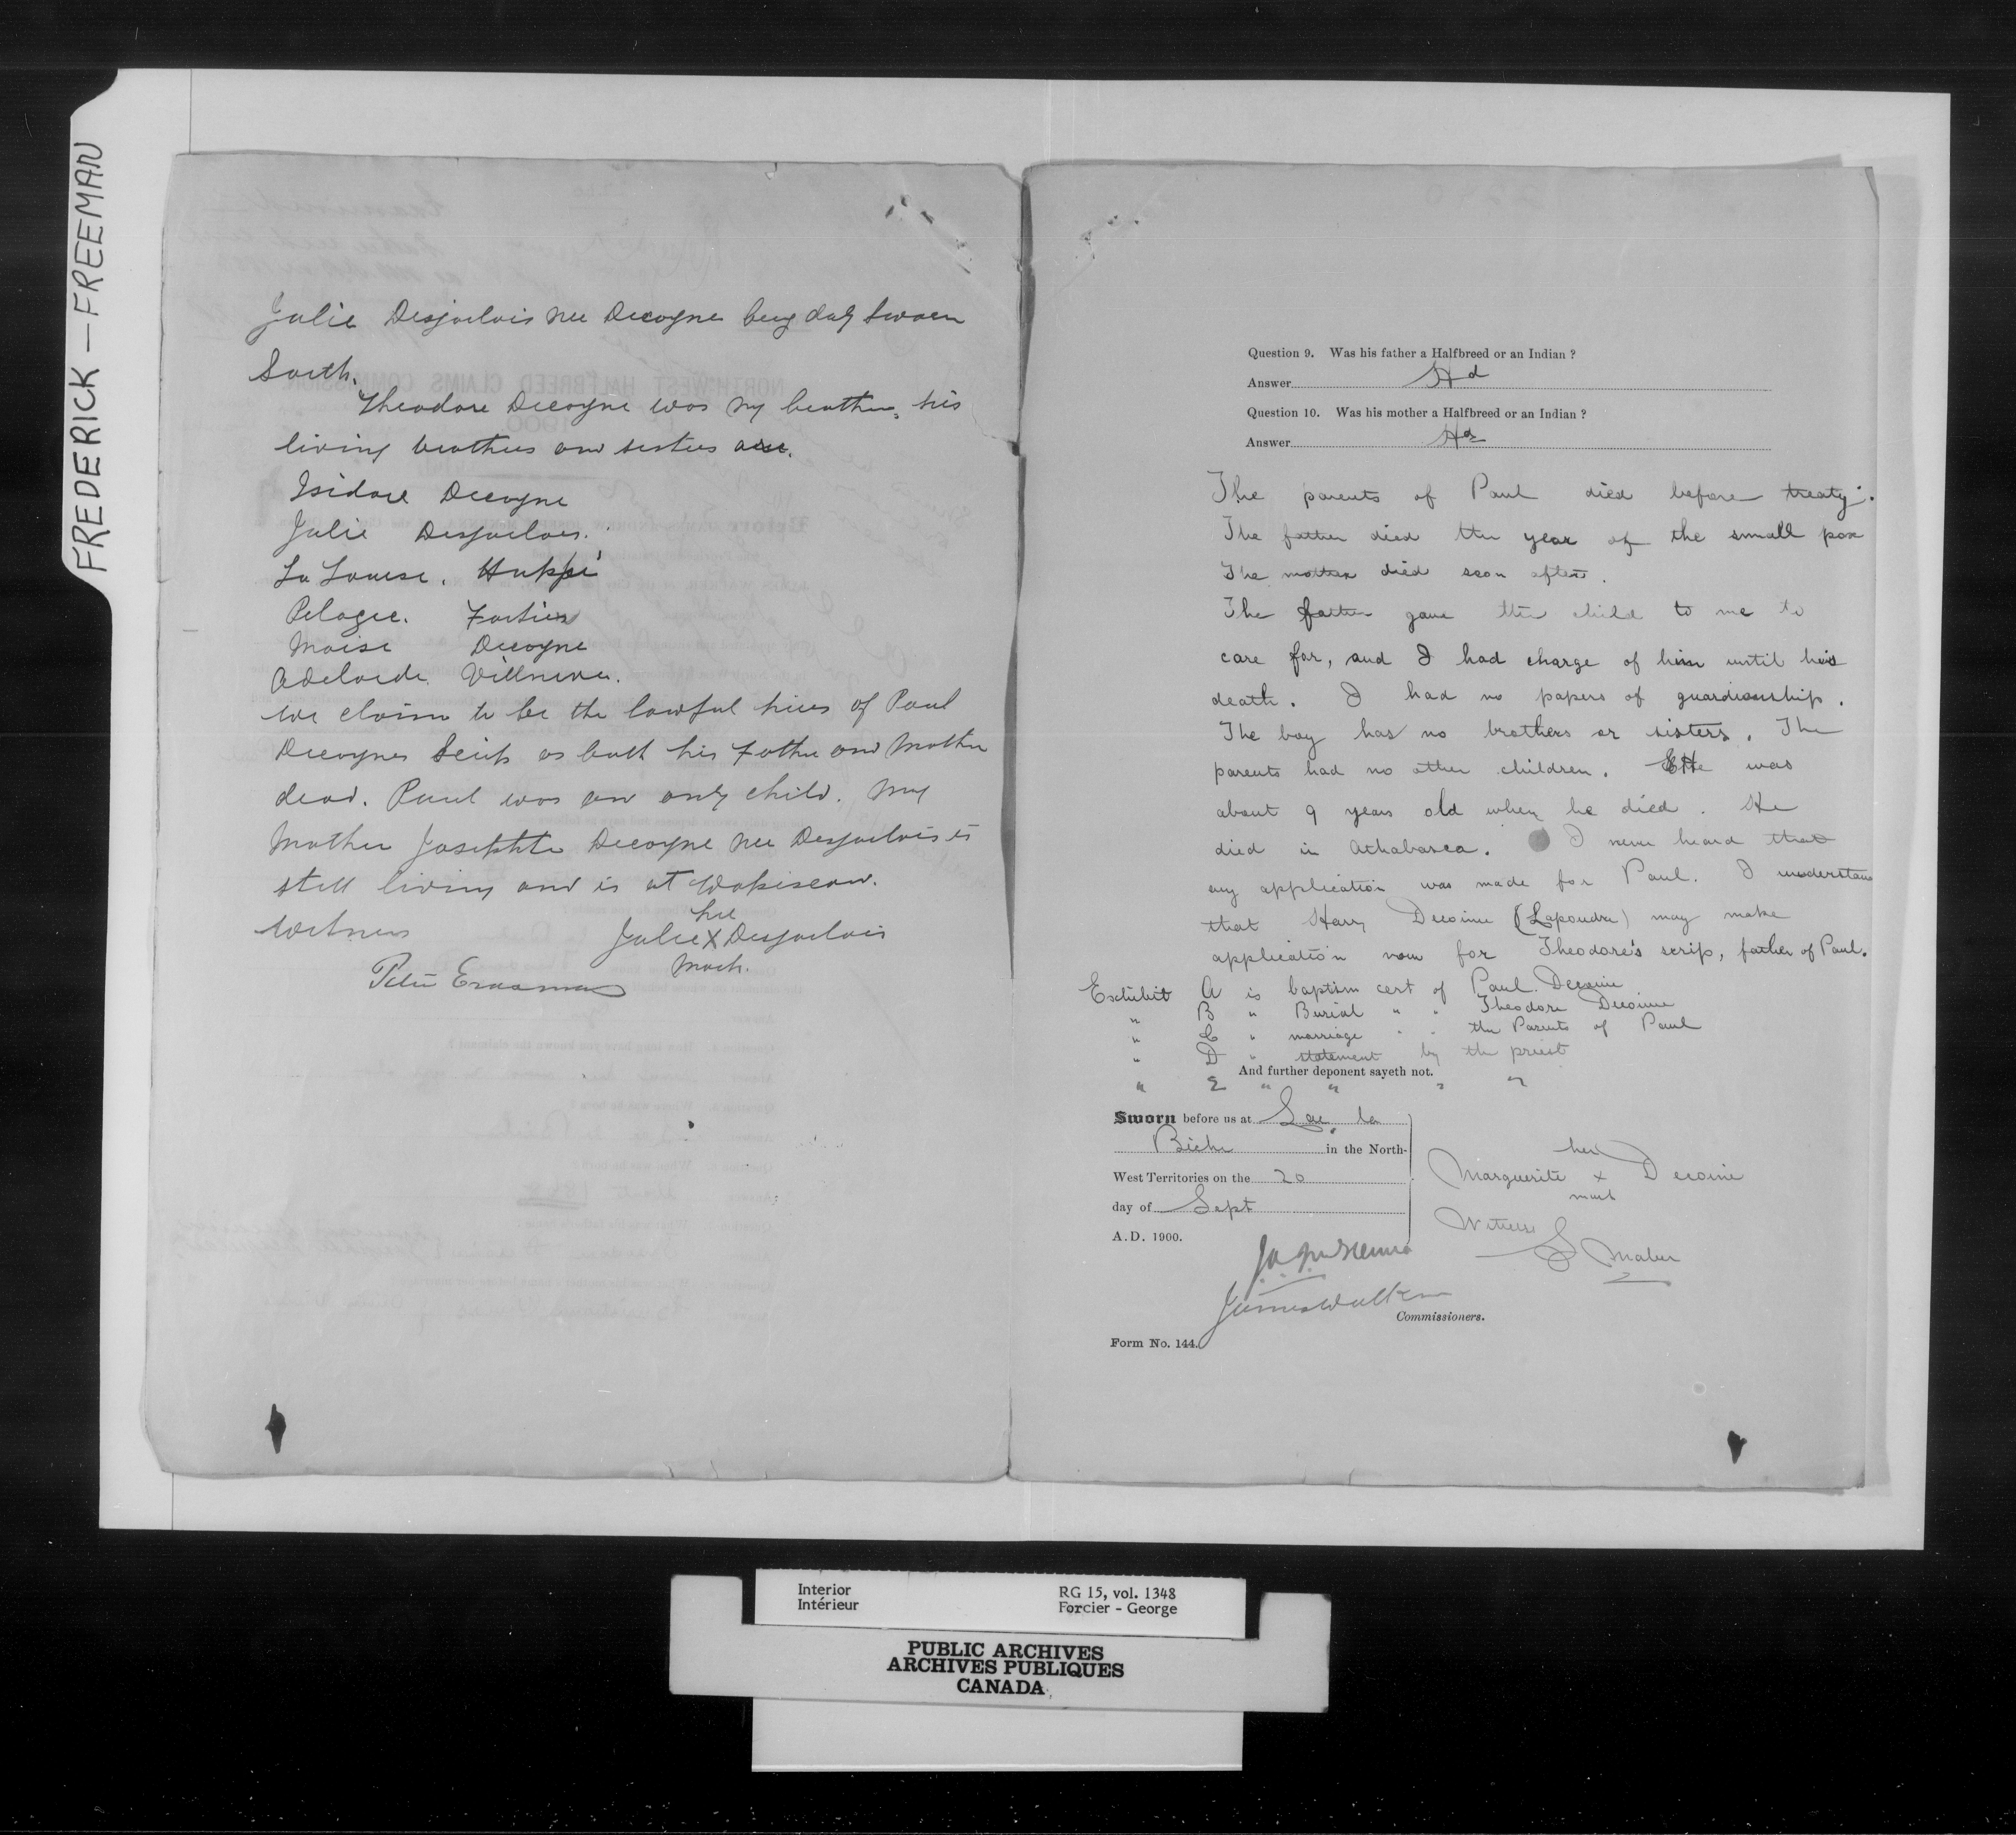 FREDERICK — FREEMAN
Julie Desjarlais nee Decoyne being duly Sworn
Saith.
Theodore Decoyne was my brother, his
living brothers and sisters are.
Isidore Decoyne
Julie Desjarlais.
La Louise. Huppé
Pelagie. Fortier
Moise Decoyne
Adelaide Villneve.
We claim to be the lawful hiers of Paul
Decoynes Scrip as both his Father and Mother
dead. Paul was an only child. My
Mother Josephte Decoyne nee Desjarlais is
still living and is at Wabiscow.
Witness
her
Julie X Desjarlais
Mark.
Peter Erasmus
Question 9. Was his father a Halfbreed or an Indian ?
Answer Hd
Question 10. Was his mother a Halfbreed or an Indian ?
Answer Hd
The parents of Paul died before treaty.
The father died the year of the small pox
The mother died soon after.
The father gave the child to me to
care for, and I had charge of him until his
death. I had no papers of guardianship.
The boy has no brothers or sisters. The
parents had no other children. He was
about 9 years old when he died. He
died in Athabasca. I never heard that
any application was made for Paul. I understand
that Harry Decoine (Lapoudre) may make
application now for Theodore's scrip, father of Paul.
Exhibit A is baptism cert of Paul Decoine
" B " Burial " " Theodore Decoine
" C " marriage " " the Parents of Paul
" D " statement by the priest
And further deponent sayeth not.
" E " " " "
Sworn before us at Lac la
Biche in the North-
West Territories on the 20
day of Sept
A.D. 1900.
her
Marguerite x Decoine
mark
Witness
J. A. McKenna
James Walker
Commissioners.
Form No. 144.
Interior
Intérieur
RG 15, vol. 1348
Forcier - George
PUBLIC ARCHIVES
ARCHIVES PUBLIQUES
CANADA